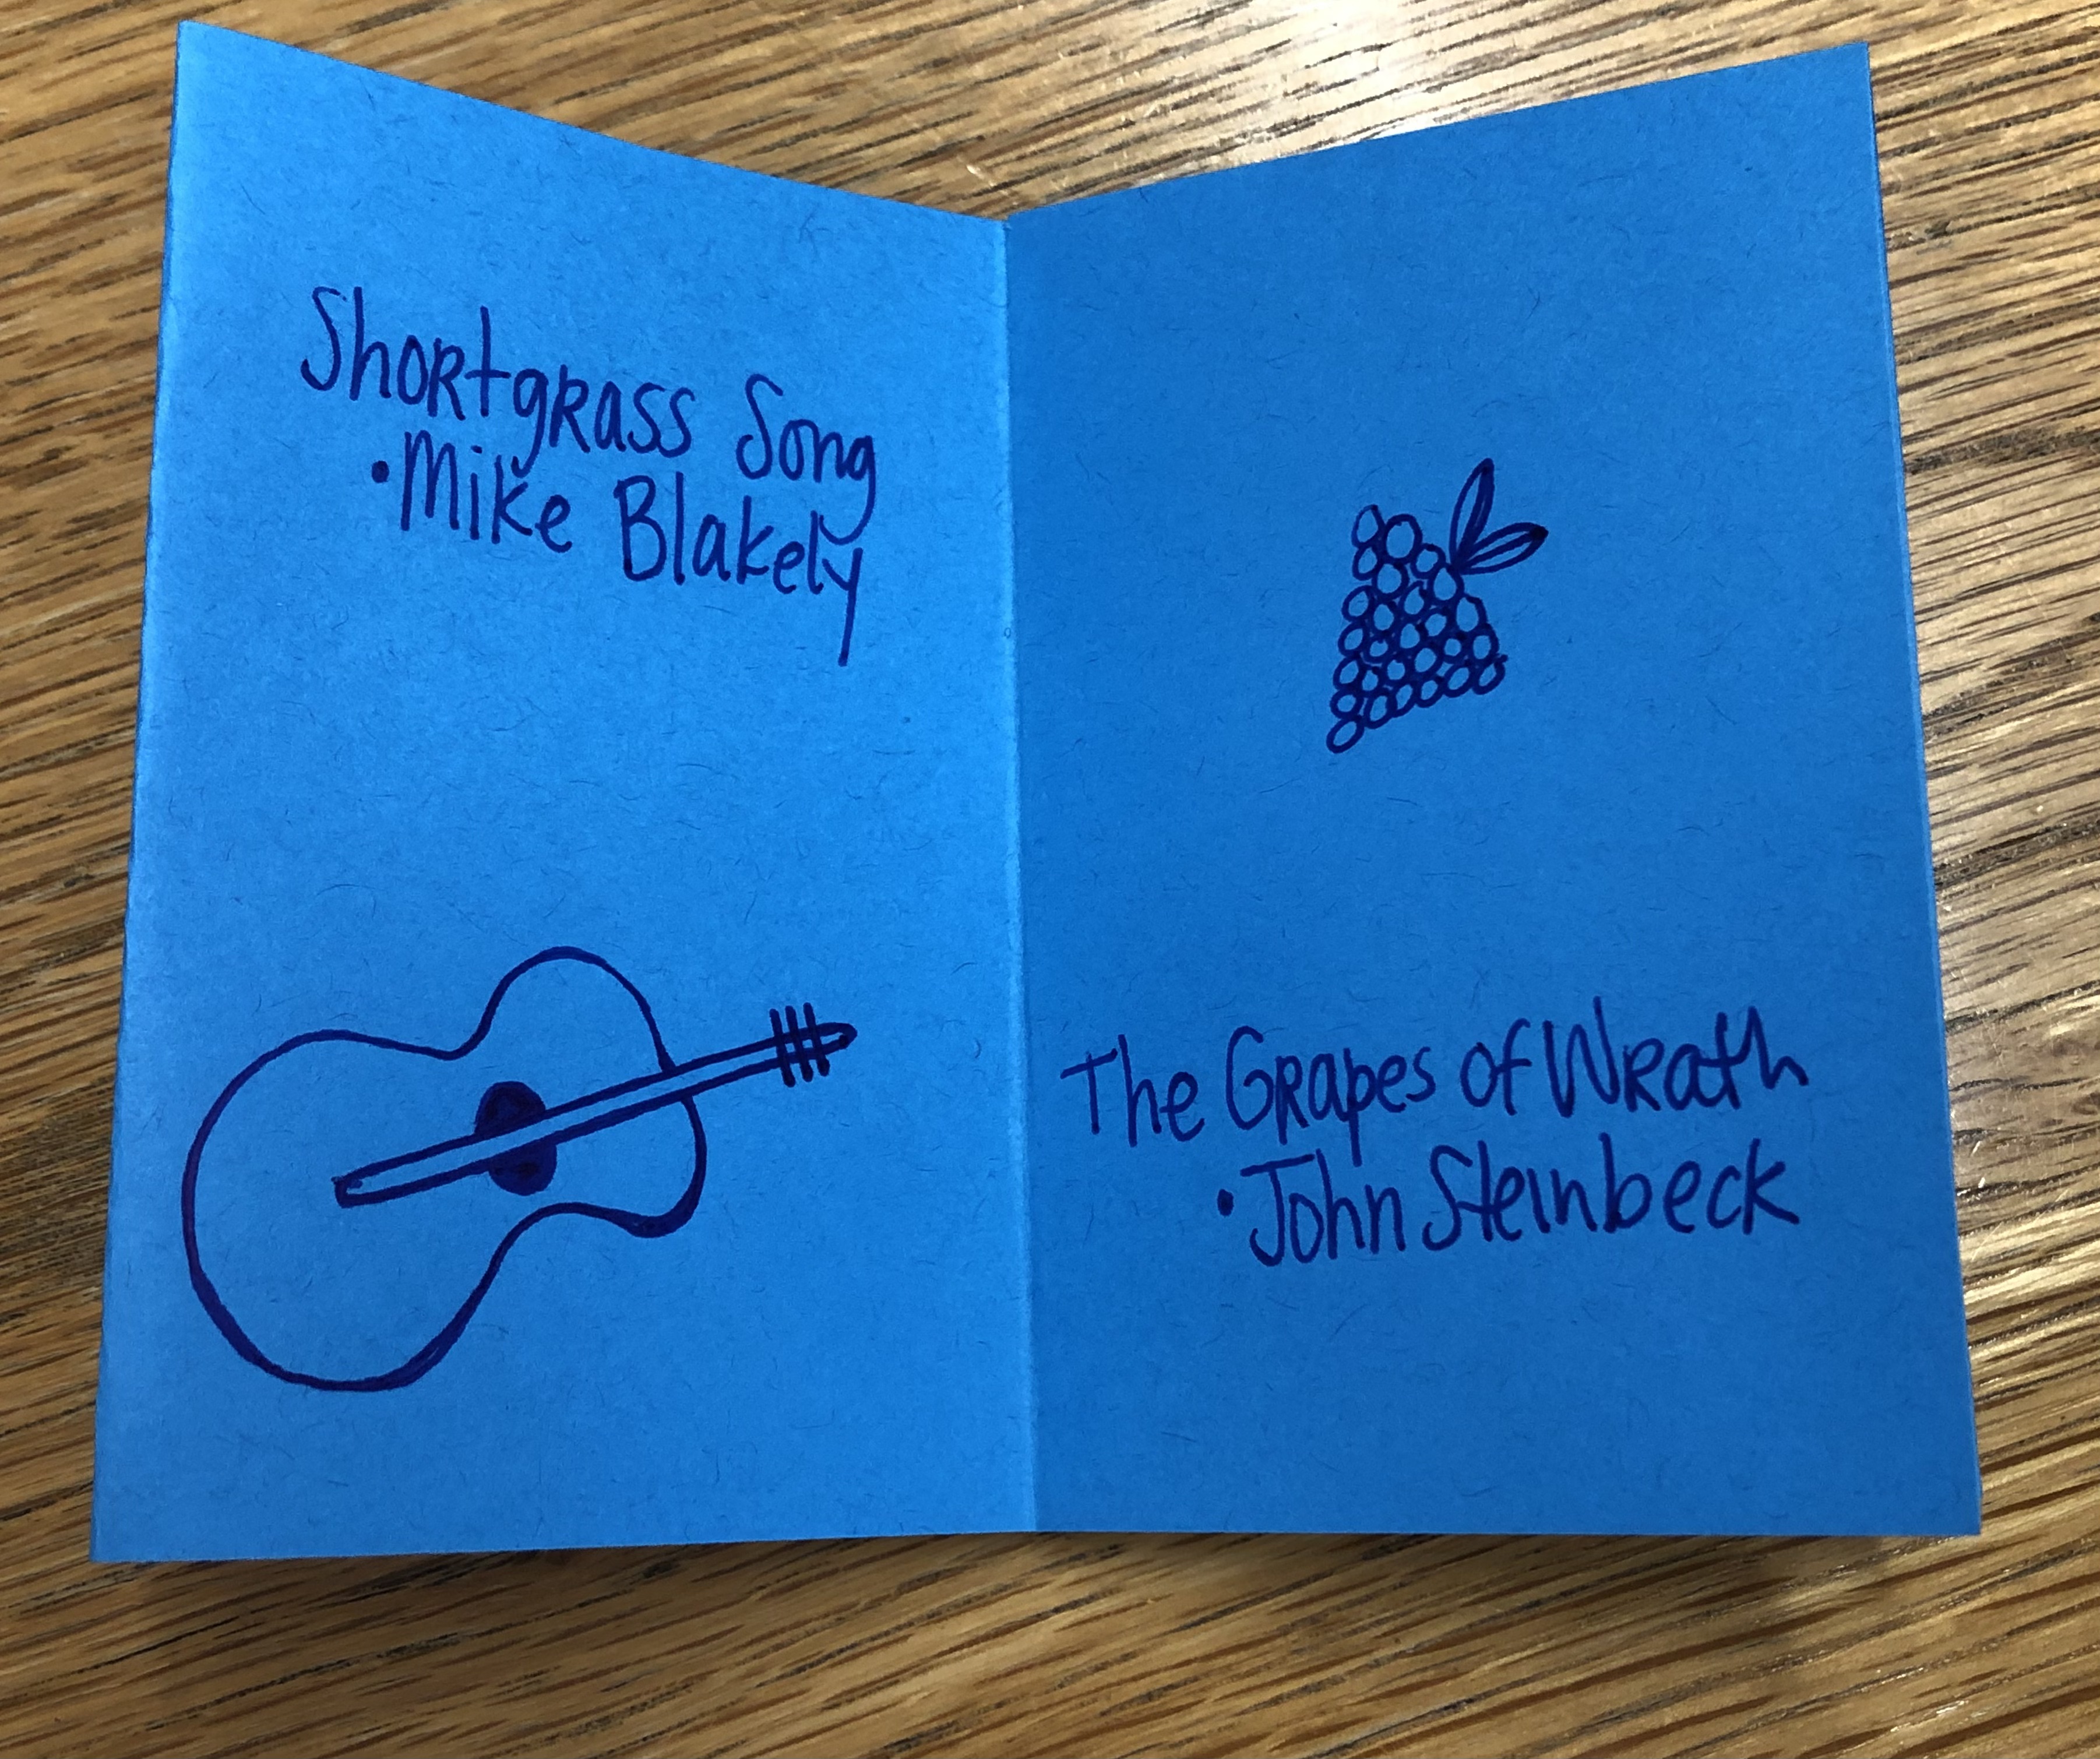 Shortgrass Song
•Mike Blakely
The Grapes of Wrath
•John Steinbeck